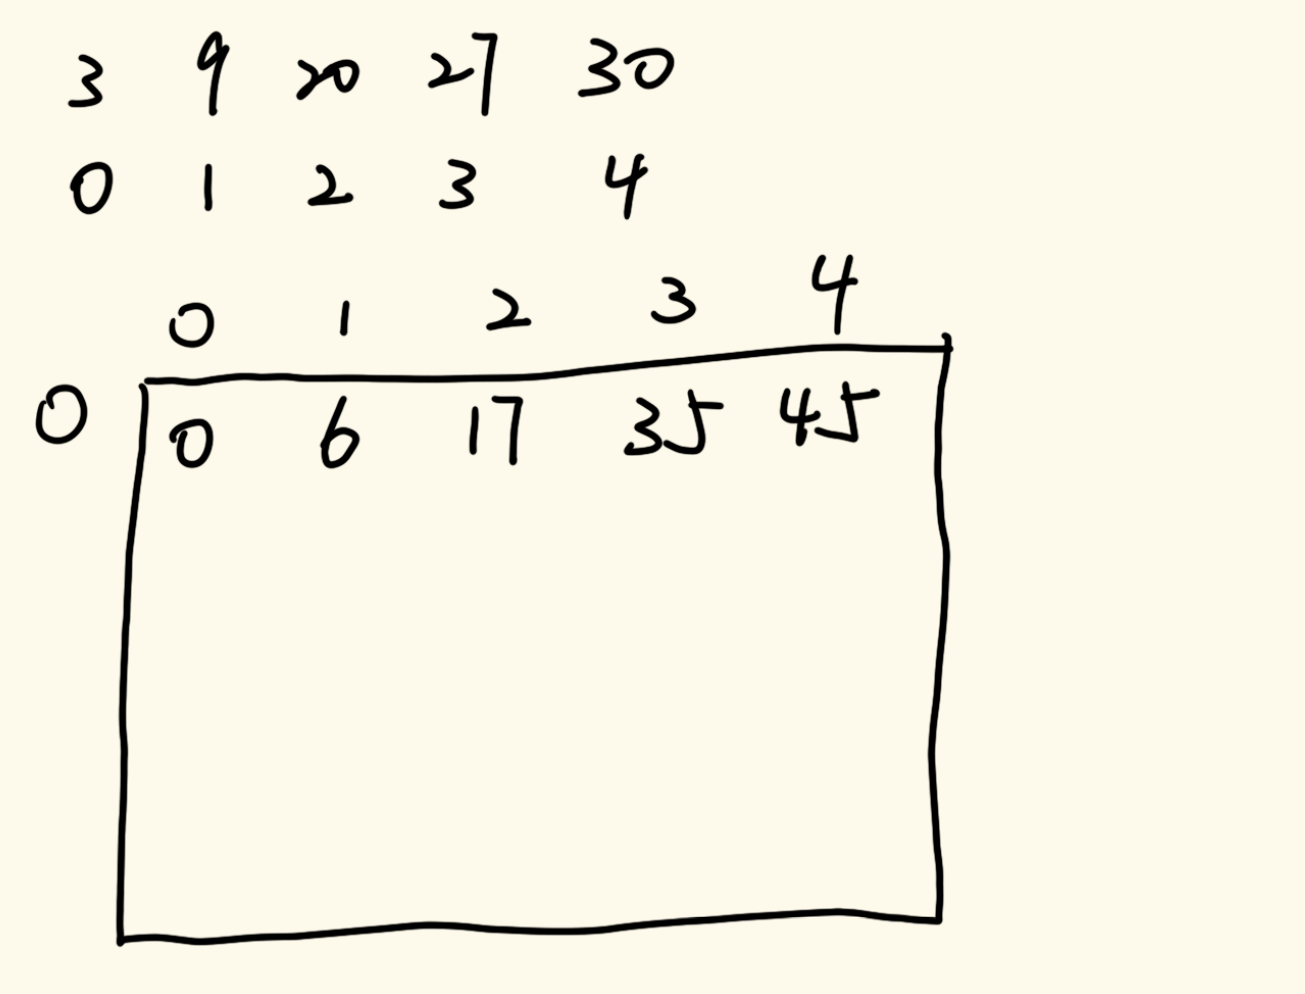 3 9 20 27 30
0 1 2 3 4
0 1 2 3 4
0 0 6 17 35 45